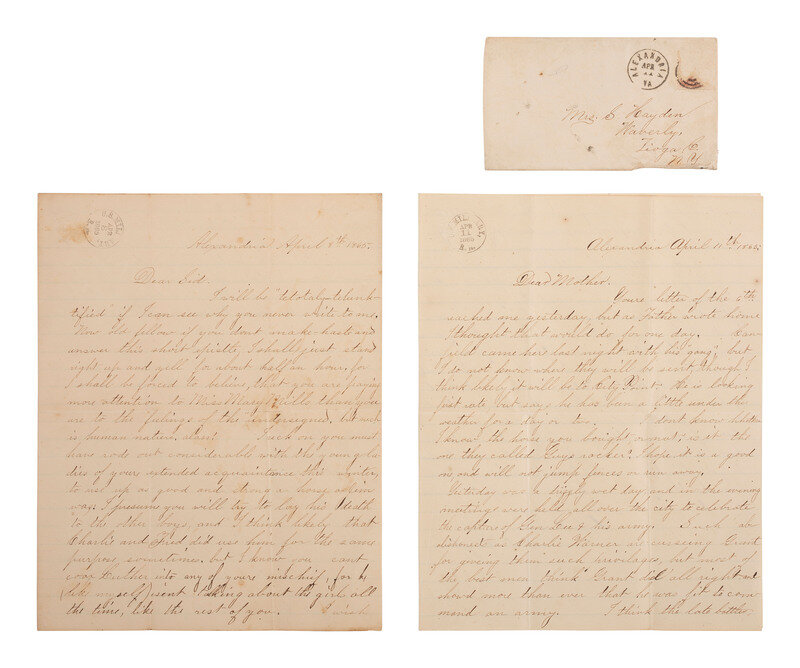 ALEXANDRIA
APR
11
VA
Mrs. C Hayden
Waverly,
Tioga C.
N.Y.
Alexandria April 8th 1865.
Dear Sid.
I will be "tetotaly-telunk-
tified" if I can see why you never write to me.
Now old fellow if you dont make hast and
answer this short epistle, I shall just stand
right up and yell for about half an hour. for
I shall be forced to believe, that you are paying
more attention to Miss Mary Mills than you
are to the feelings of the undersigned. but such
is human nature, alas! Jack on you must
have rode out considerable with the young la-
dies of your extended acquaintance this winter,
to use up as good and strong a horse as him
was. I presume you will try to lay his death
to the other boys, and I think likely that
Charlie and Fred did use him for the same
purpose sometimes. but I know you cant
coax Luther into any of youre mischief. for he
(like myself) isent thinking about the girls all
the time, like the rest of you. I wish
APR
11
1865
Alexandria April 11th 1865
Dear Mother.
Youre letter of the 6th
reached me yesterday, but as Father wrote home
I thought that would do for one day.
field came her last night with his "gang", but
I do not know where they will be sent though I
think likely it will be to City Point. He is looking
first rate but says he has been a little under the
weather for a day or two. I dont know whether
I know the horse you bought or not; is it the
one they called Guys rocker? I hope it is a good
one and will not jump fences or run away.
Yesterday was a drizzly wet day and in the evening
meetings were held all over the city to celebrate
the capture of Gen Lee & his army. Such
dishoned is Charlie Warner in cussing Grant
for giving them such privilages, but most of
the best men think Grant did all right and
showd more than ever that he was fit to com-
mand an army. I think the late battles,